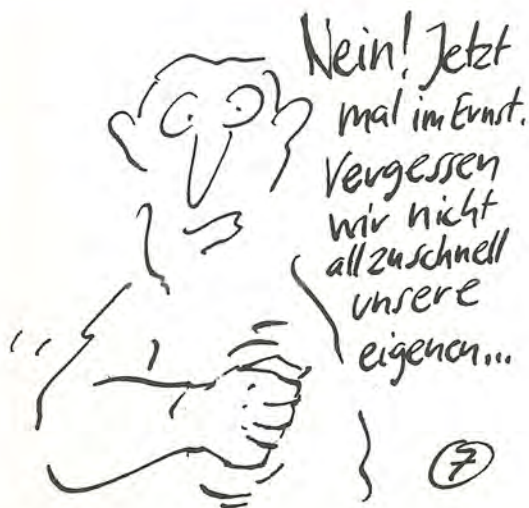 Nein! Jetzt
mal im Ernst.
Vergessen
wir nicht
allzuschnell
unsere
eigenen...
7